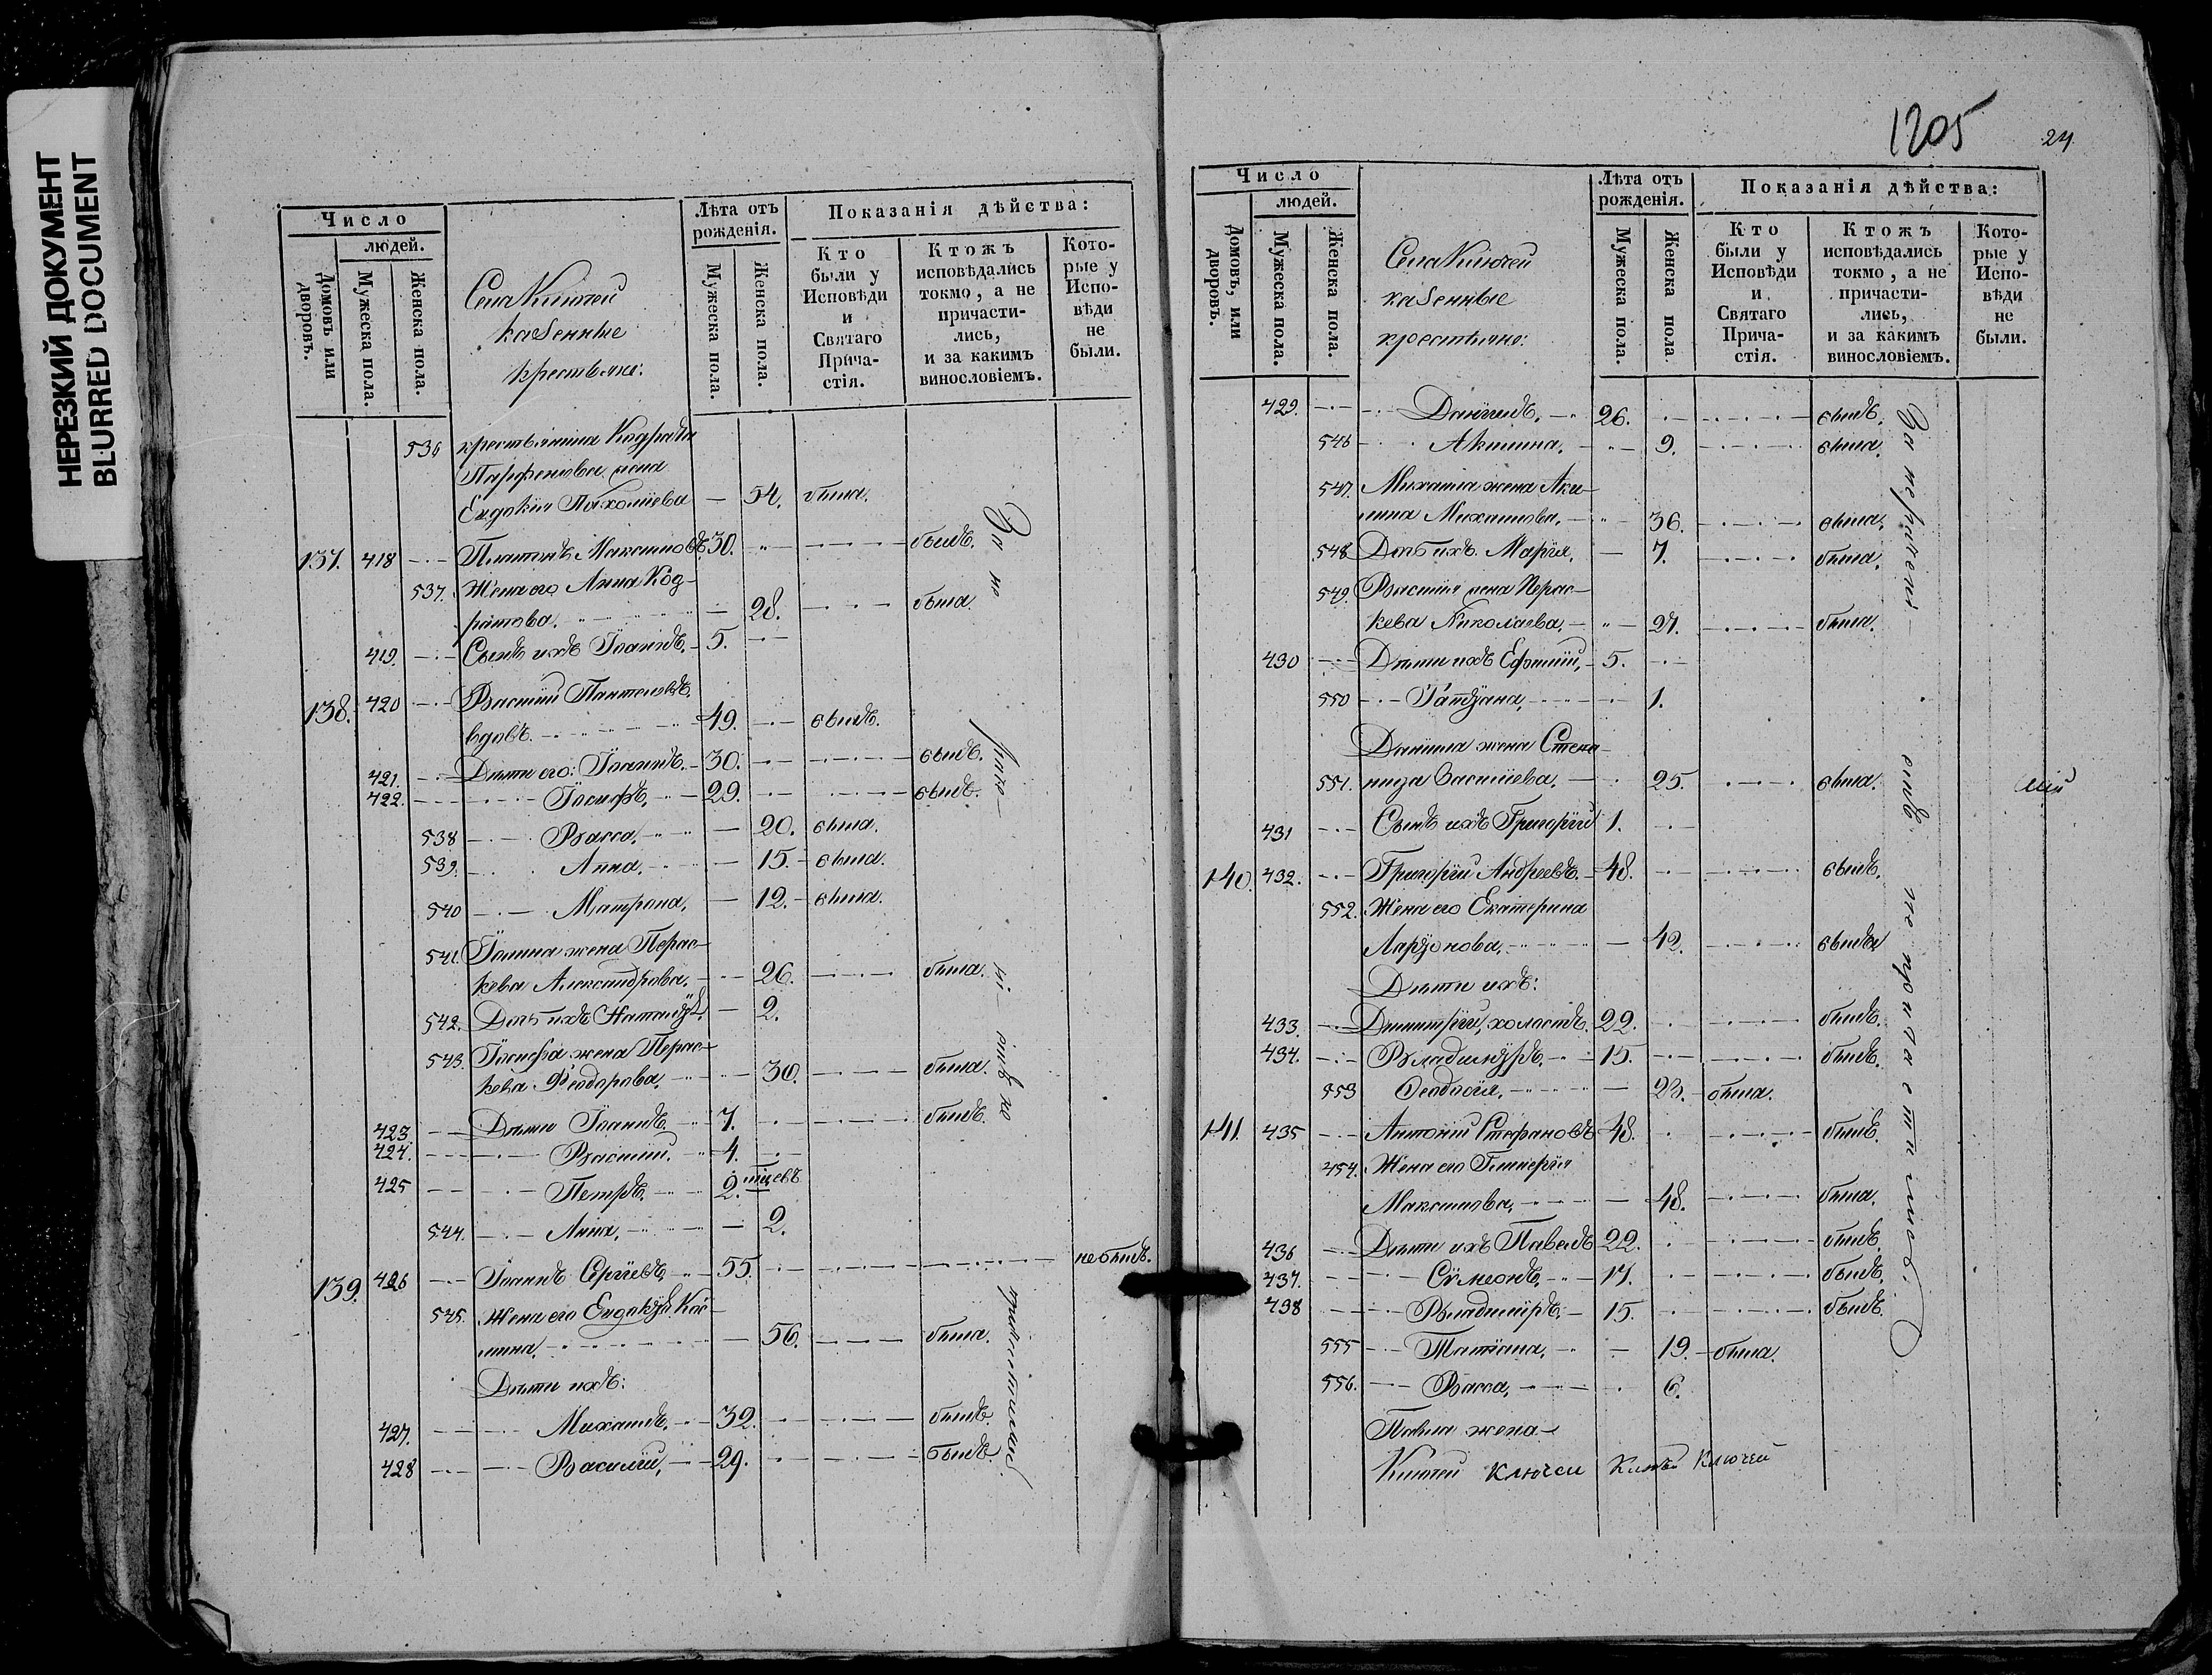 НЕРЕЗКИЙ ДОКУМЕНТ
BLURRED DOCUMENT
Число
людей.
Домовъ или дворовъ.
Мужеска пола.
Женска пола.
Села Ключей
казенные
крестьяне:
Лѣта отъ рожденія.
Мужеска пола.
Женска пола.
Показанія дѣйства:
Кто были у Исповѣди и Святаго Прича- стія.
Ктожъ исповѣдались токмо, а не причасти- лись, и за какимъ винословіемъ.
Кото- рые у Испо- вѣди не были.
536 крестьянина Кодрата
Парфенова жена
Евдокія Пахоміева — 54. была.
137. 418 Платонъ Максимовъ 30. былъ.
537. Жена его Анна Код-
ратова. — 28. была.
419. Сынъ ихъ Іоаннъ. 5.
138. 420 Василій Пантелеевъ
вдовъ. 49. былъ.
421. Дѣти его: Іоаннъ. 30. былъ.
422. Іосифъ, 29. былъ.
538 Васса, — 20. была.
539. Анна, — 15. была.
540 Матрона, — 12. была.
541. Іоанна жена Перас-
кева Александрова, 26. была.
542. Дочь ихъ Наталія. — 2.
543. Іосифа жена Перас-
кева Ѳеодорова, 30. была.
423. Дѣти Іоаннъ. 7. былъ.
424. Василій. 4.
425 Петръ, 2. мѣсяцевъ
544. Анна, — 2.
139. 426 Іоаннъ Сергіевъ, 55. не былъ.
545. Жена его Евдокія Кос-
мина, — 56. была.
Дѣти ихъ:
427. Михаилъ, 32. былъ.
428 Василій, 29. былъ.
1205
24
Число
людей.
Домовъ, или дворовъ.
Мужеска пола.
Женска пола.
Села Ключей
казенные
крестьяне:
Лѣта отъ рожденія.
Мужеска пола.
Женска пола
Показанія дѣйства:
Кто были у Исповѣди и Святаго Прича- стія.
Ктожъ исповѣдались токмо, а не причасти- лись, и за какимъ винословіемъ.
Кото- рые у Испо- вѣди не были.
429. Даніилъ, 26. былъ.
546 Акилина, 9. была.
547. Михаила жена Аки-
лина Михаилова, 36. была.
548 Дочь ихъ Марія, — 7. была.
549. Василія жена Перас-
кева Николаева, 27. была.
430 Дѣти ихъ Ефимій, 5.
550 Татіана, 1.
Даніила жена Степа-
551. нида Васильева, 25. была.
431 Сынъ ихъ Григорій 1.
140. 432. Григорій Андреевъ. 48. былъ.
552. Жена его Екатерина
Ларіонова, — 42. была
Дѣти ихъ:
433. Димитрій, холостъ. 22. былъ.
434. Владиміръ, 15. былъ.
553 Ѳеодосія, — 23. была.
141. 435 Антоній Стефановъ 48. былъ.
454. Жена его Гликерія
Максимова, — 48. была.
436 Дѣти ихъ Павелъ 22. былъ.
437. Сѵмеонъ, 17. былъ.
438 Владиміръ. 15. былъ.
555 Татіана, 19. была.
556. Васса, 6.
Павла жена
Ключей Ключей Ключей Ключей